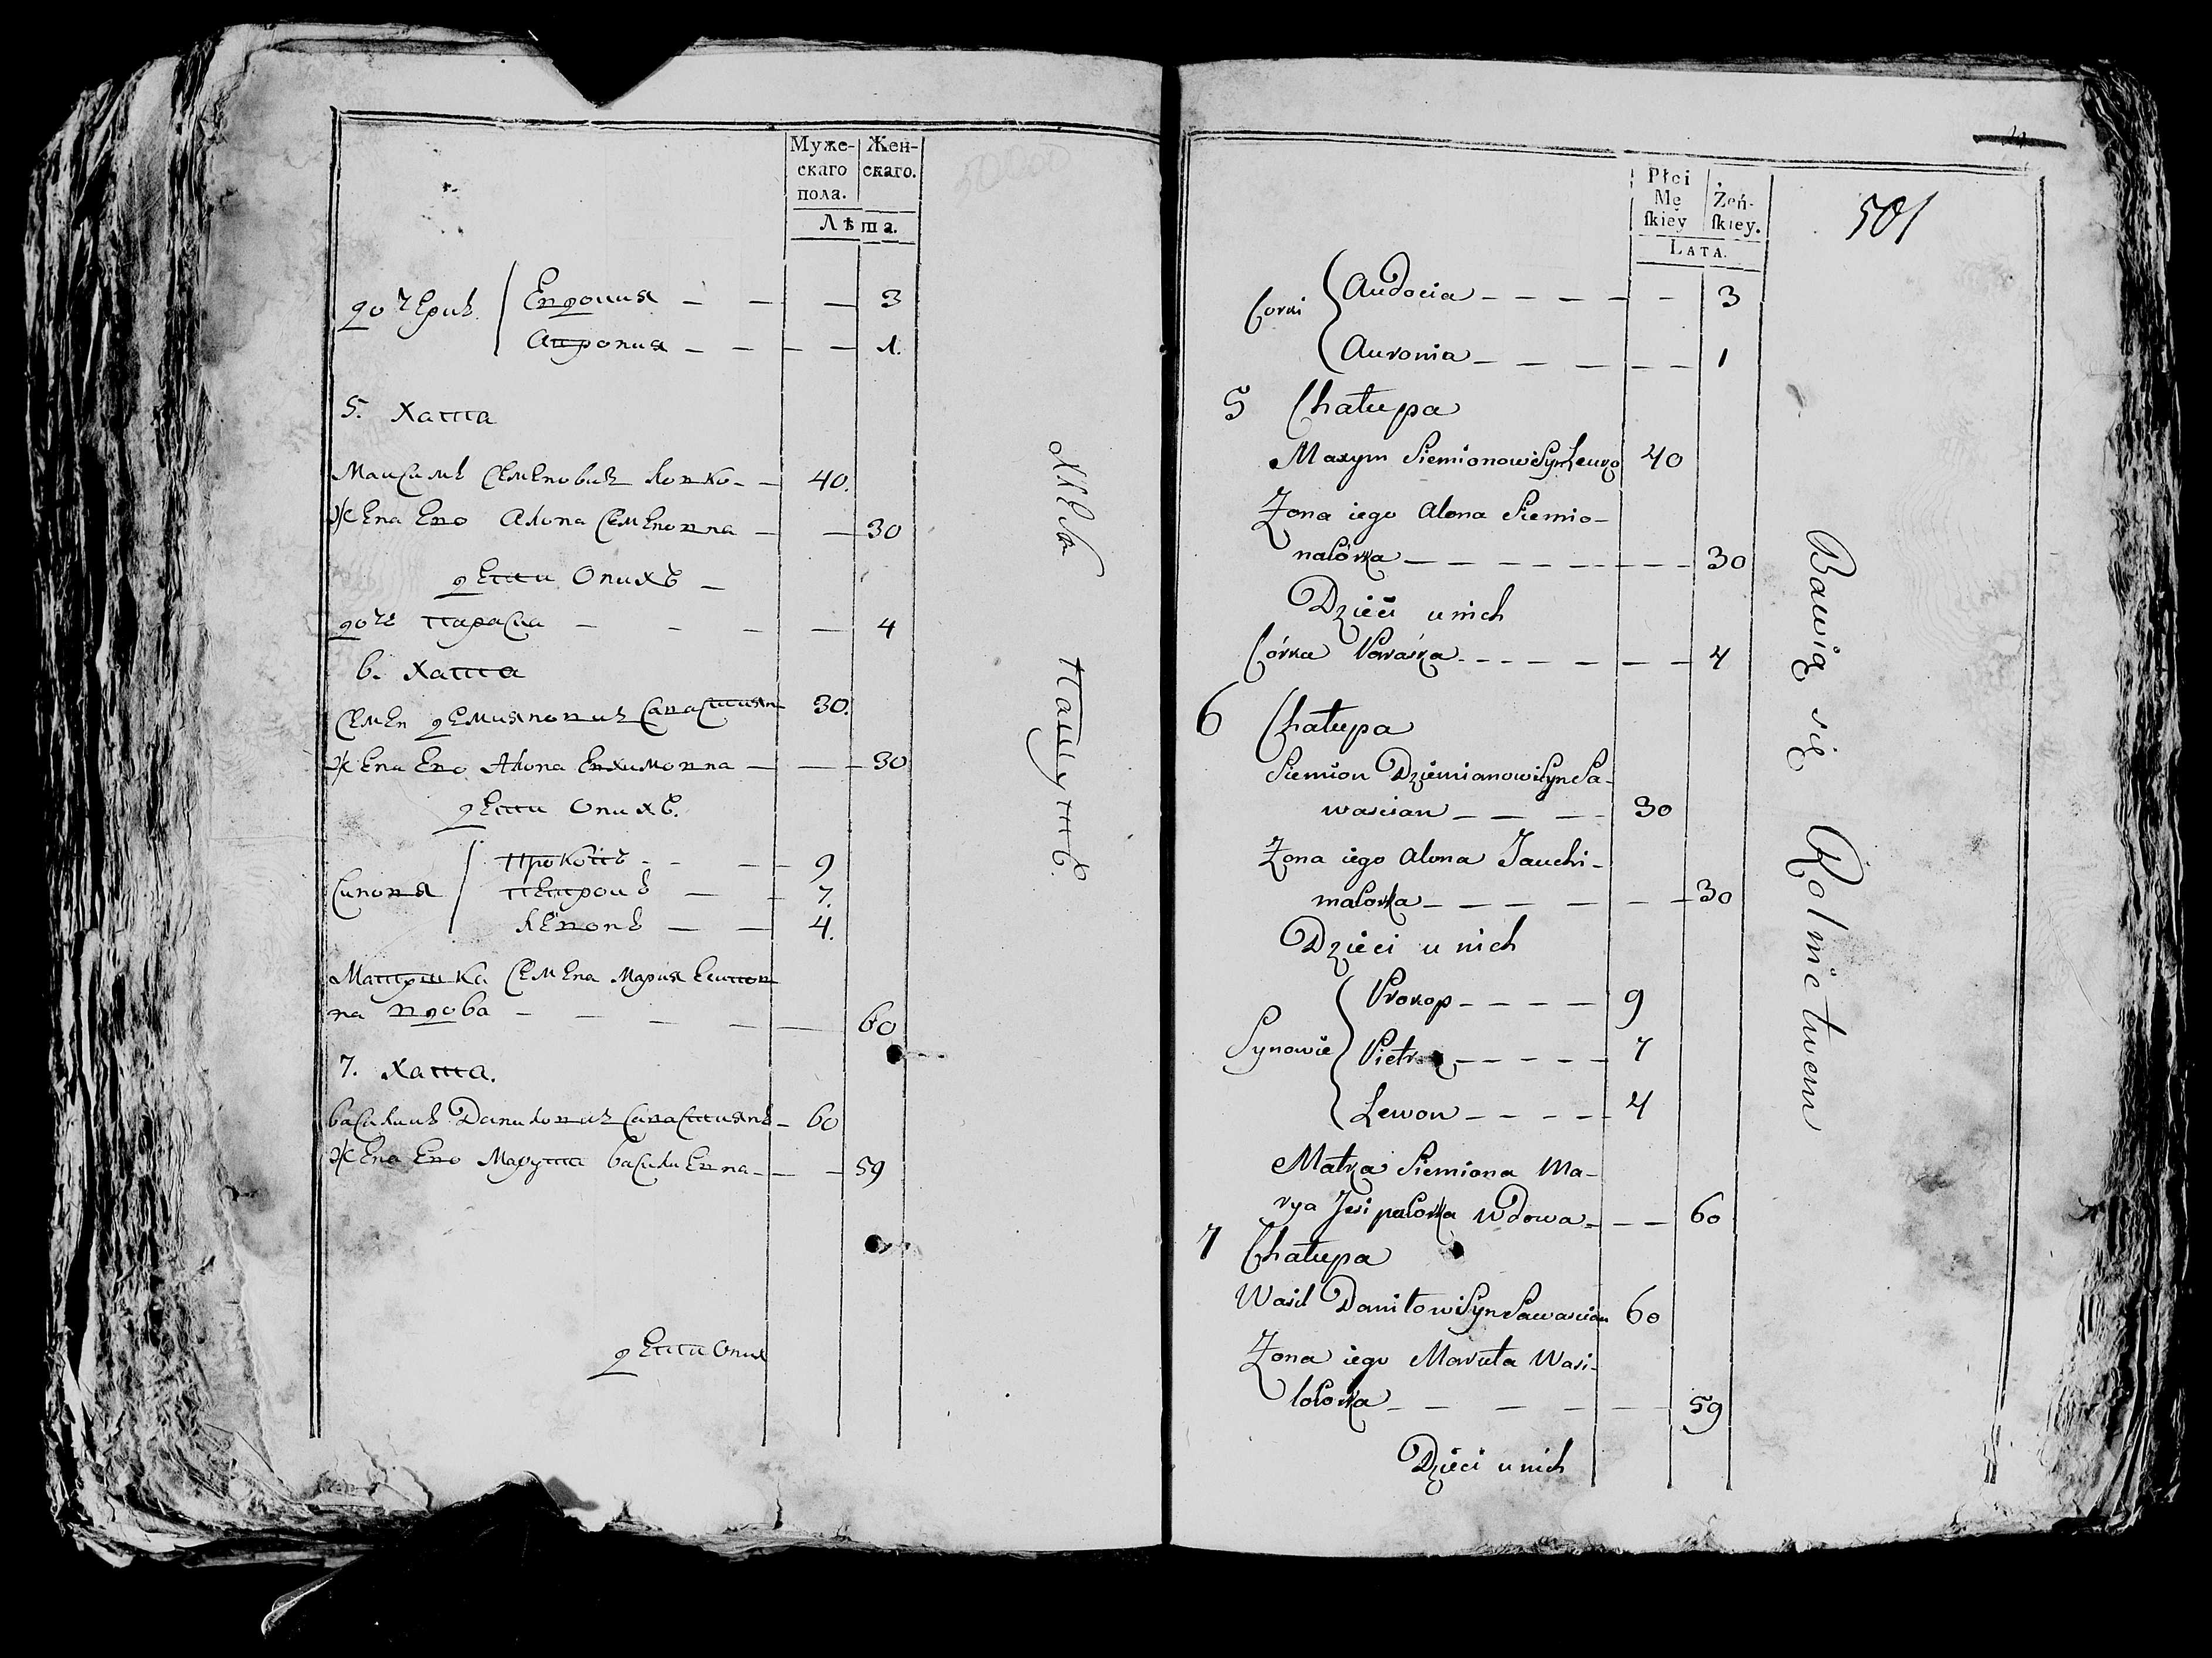 Муже-
скаго
пола.
Жен-
скаго.
Лѣта.
дочери { Евдокия — — — 3
Апрония — — — — 1.
5. Хата
Максимъ Семеновичъ Левко — — 40.
жена Ево Алона Семеновна — — 30
дети Оних —
доче Параска — — — — 4
6. Хата
Семен демиановичъ Савастиян 30.
жена Ево Алона Евхимовна — — — 30
дети Оних.
Синовя { Прокопъ - - — 9
Петрокъ — — 7.
левонъ — — 4.
Матушка Семена Мария Есипов
на вдова — — — — — 60
7. Хата.
Василий Данилович Савастиянъ — 60
жена Ево Марута Василевна — — — 59
дети Оних
Хлѣбо Пашутъ.
24
501
Płci
Mę
ſkiey
Żeń-
ſkiey.
LATA.
Corki { Audocia — — — — — 3
Auronia — — — — — — 1
5 Chałupa
Maxym Siemionowi Syn Leuko 40
Żona iego Alona Siemio-
nałówka — — — — — — — — 30
Dzieci u nich
Córka Paraska - - - — — — — 4
6 Chałupa
Siemion Dziemianowi Syn Sa-
wascian — — — — 30
Żona iego Alona Jauchi-
małowka — — — — — — — 30
Dzieci u nich
Synowie { Prokop - - - — 9
Pietr — — — — — 7
Lewon — — — — — 4
Matka Siemiona Ma-
rya Jesipałowka Wdowa — — — 60
7 Chałupa
Wasil Daniłowi Syn Sawascian 60
Żona iego Maruta Wasi-
lołowka — — — — — — 59
Dzieci u nich
Bawią się Rolnictwem